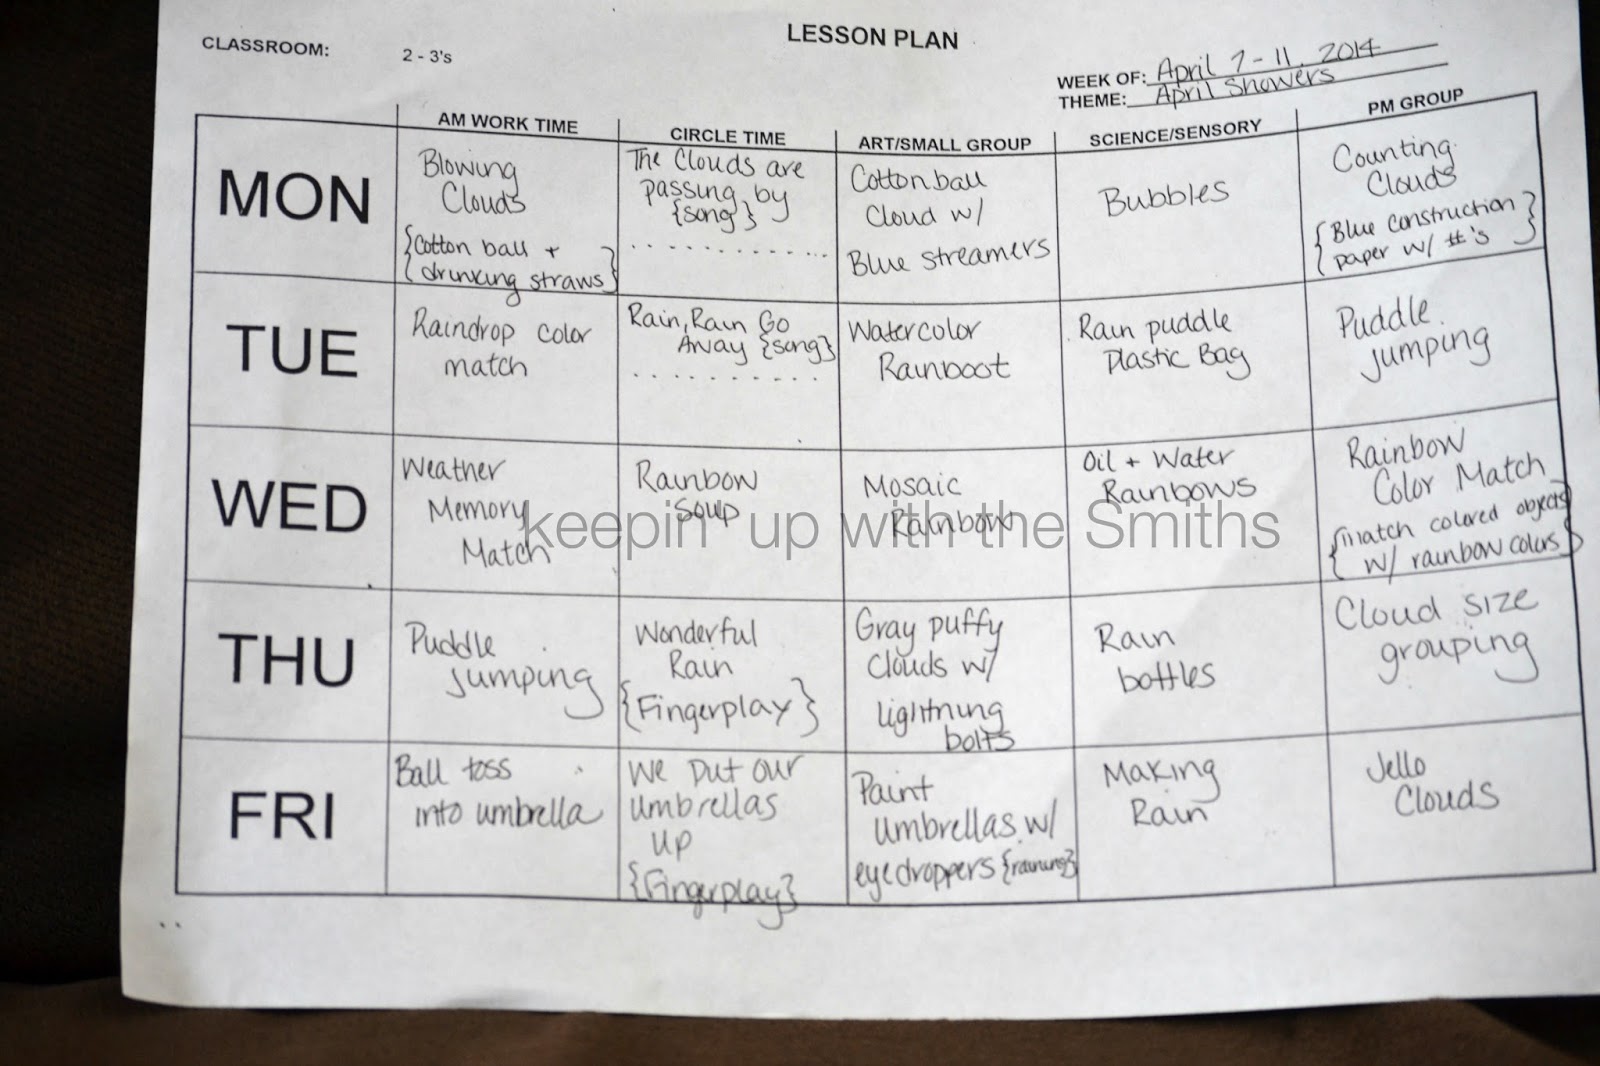 LESSON PLAN
CLASSROOM: 2 - 3's
WEEK OF: April 7-11, 2014
THEME: April Showers
AM WORK TIME
CIRCLE TIME
ART/SMALL GROUP
SCIENCE/SENSORY
PM GROUP
MON
Blowing
Clouds
{Cotton ball +
drinking straws}
The Clouds are
passing by
{song}
Cottonball
Cloud w/
Blue streamers
Bubbles
Counting
Clouds
{Blue construction
paper w/ #'s}
TUE
Raindrop color
match
Rain, Rain Go
Away {song}
Watercolor
Rainboot
Rain puddle
Plastic Bag
Puddle
jumping
WED
Weather
Memory
Match
Rainbow
Soup
Mosaic
Rainbow
Oil + Water
Rainbows
Rainbow
Color Match
{match colored objects
w/ rainbow colors}
keepin' up with the Smiths
THU
Puddle
jumping
Wonderful
Rain
{Fingerplay}
Gray puffy
Clouds w/
lightning
bolts
Rain
bottles
Cloud size
grouping
FRI
Ball toss
into umbrella
We put our
umbrellas
up
{Fingerplay}
Paint
umbrellas w/
eyedroppers {raining}
Making
Rain
Jello
Clouds